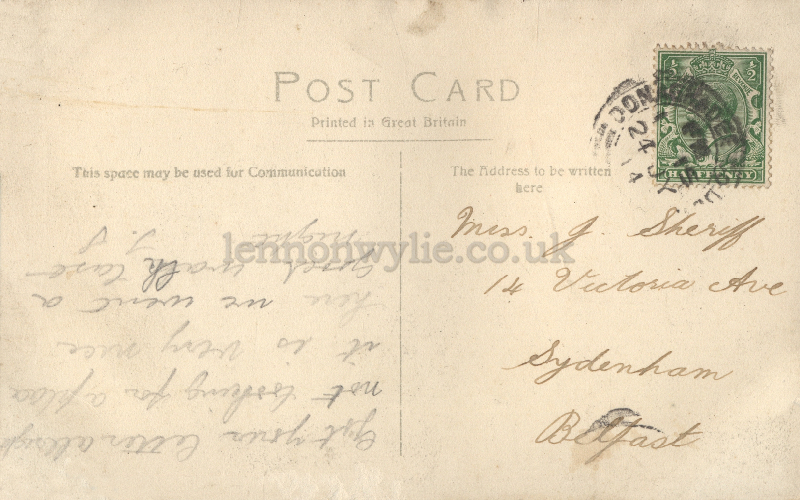 POST CARD
Printed in Great Britain
This space may be used for Communication
The Address to be written
here
½ ½
HALFPENNY
DONAGHADEE
24 JY
14
Miss. J. Sheriff
14 Victoria Ave
Sydenham
Belfast
Got your letter alright
not looking for a place
it is very nice
here we went a
good walk last
night J. S
lennonwylie.co.uk